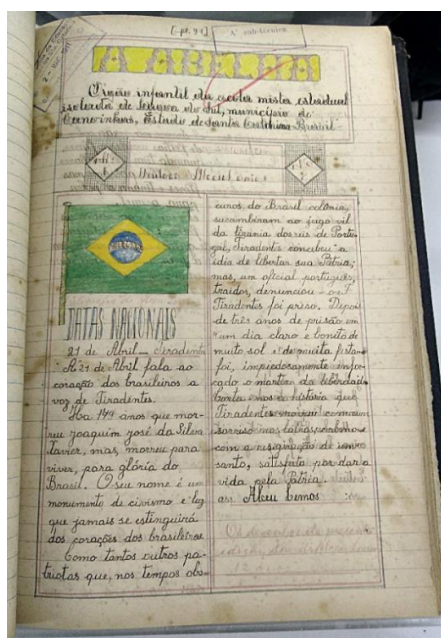 [-pg. 91]
Orgão infantil da escola mista estadual
isolada de Serêiva do Sul, município de
Canoinhas, Estado de Santa Catarina-Brasil
DATAS NACIONAIS
21 de Abril - Tiradentes
A 21 de Abril fala ao
coração dos brasileiros a
voz de Tiradentes.
Ha 144 anos que mor-
reu Joaquim José da Silva
Xavier, mas, morreu para
viver, para glória do
Brasil. O seu nome é um
monumento de civismo e luz
que jamais se estinguirá
dos corações dos brasileiros
Como tantos outros pa-
triotas que, nos tempos obs-
curos, do Brasil colônia,
sucumbiram ao jugo vil
da tirania dos reis de Portu-
gal, Tiradentes concebeu a
idia de libertar sua Pátria;
mas, um oficial português,
traidor, denunciou-o. E
Tiradentes foi prêso. Depois
de três anos de prisão em
um dia claro e bonito de
muito sol e de muita festa
foi, impiedosamente enfor-
cado o martir da liberdade
Conta-nos a história que
Tiradentes morreu com um
sorriso nos labios
com a resignação de
santo, satisfeito por dar a
vida pela Pátria.
ass. Alceu Lemos